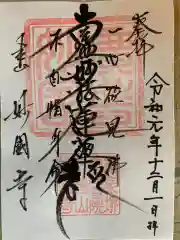 奉拝
令和元年十二月一日拝
一心欲見佛
南無妙法蓮華経
不自惜身命
妙國寺